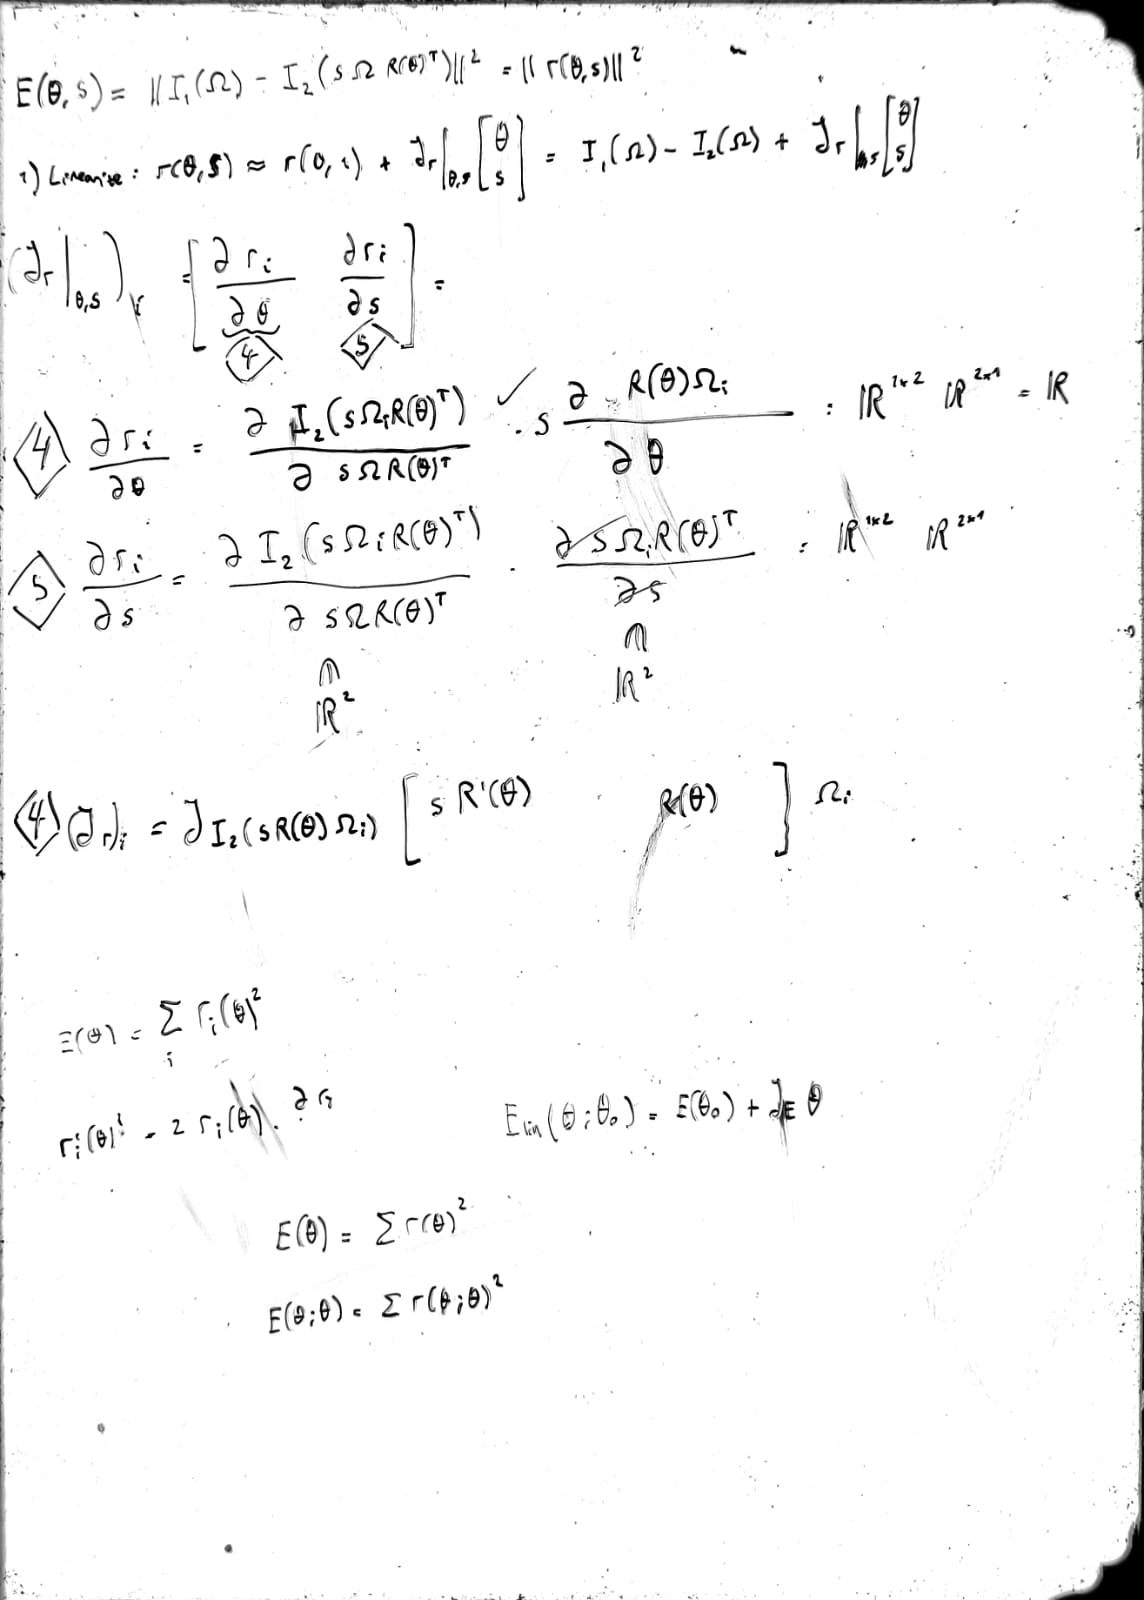 E(θ, s) = ‖I₁(Ω) - I₂(s Ω R(θ)ᵀ)‖² = ‖r(θ,s)‖²
1) Linearize: r(θ,s) ≈ r(0,1) + J_r|_{θ,s} [θ s] = I₁(Ω) - I₂(Ω) + J_r|_{θ,s} [θ s]
(J_r|_{θ,s})_i = [∂r_i/∂θ ∂r_i/∂s] =
4 5
4 ∂r_i/∂θ = ∂I₂(sΩ_iR(θ)ᵀ)/∂sΩR(θ)ᵀ ✓ · s ∂R(θ)Ω_i/∂θ : ℝ^{1×2} ℝ^{2×1} = ℝ
5 ∂r_i/∂s = ∂I₂(sΩ_iR(θ)ᵀ)/∂sΩR(θ)ᵀ · ∂sΩ_iR(θ)ᵀ/∂s : ℝ^{1×2} ℝ^{2×1}
∩ ∩
ℝ² ℝ²
4 (J_r)_i = J_{I₂}(sR(θ)Ω_i) [s R'(θ) R(θ)] Ω_i
E(θ) = Σ_i r_i(θ)²
r_i(θ)² = 2 r_i(θ) · ∂r_i
E_lin(θ; θ₀) = E(θ₀) + J_E θ
E(θ) = Σ r(θ)²
E(θ;θ) = Σ r(θ;θ)²